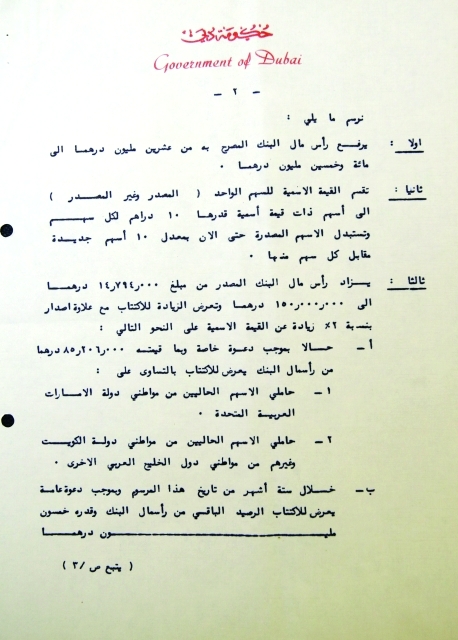 حكومة دبي
Government of Dubai
- ٢ -
نرسم ما يلي :
اولا : يرفع رأس مال البنك المصرح به من عشرين مليون درهما الى
مائة وخمسين مليون درهما .
ثانيا : تقسم القيمة الاسمية للسهم الواحد ( المصدر وغير المصدر )
الى أسهم ذات قيمة أسمية قدرها ١٠ دراهم لكل سهم
وتستبدل الاسهم المصدرة حتى الان بمعدل ١٠ أسهم جديدة
مقابل كل سهم منها .
ثالثا : يزاد رأس مال البنك المصدر من مبلغ ١٤٫٧٩٤٫٠٠٠ درهما
الى ١٥٠٫٠٠٠٫٠٠٠ درهما وتعرض الزيادة للاكتتاب مع علاوة اصدار
بنسبة ٢٪ زيادة عن القيمة الاسمية على النحو التالي :
أ - حالا بموجب دعوة خاصة وبما قيمته ٨٥٫٢٠٦٫٠٠٠ درهما
من رأسمال البنك يعرض للاكتتاب بالتساوى على :
١ - حاملي الاسهم الحاليين من مواطني دولة الامارات
العربية المتحدة .
٢ - حاملي الاسهم الحاليين من مواطني دولة الكويت
وغيرهم من مواطني دول الخليج العربي الاخرى .
ب - خلال ستة أشهر من تاريخ هذا المرسوم وبموجب دعوة عامة
يعرض للاكتتاب الرصيد الباقي من رأسمال البنك وقدره خمسون
مليون درهما
( يتبع ص /٣ )